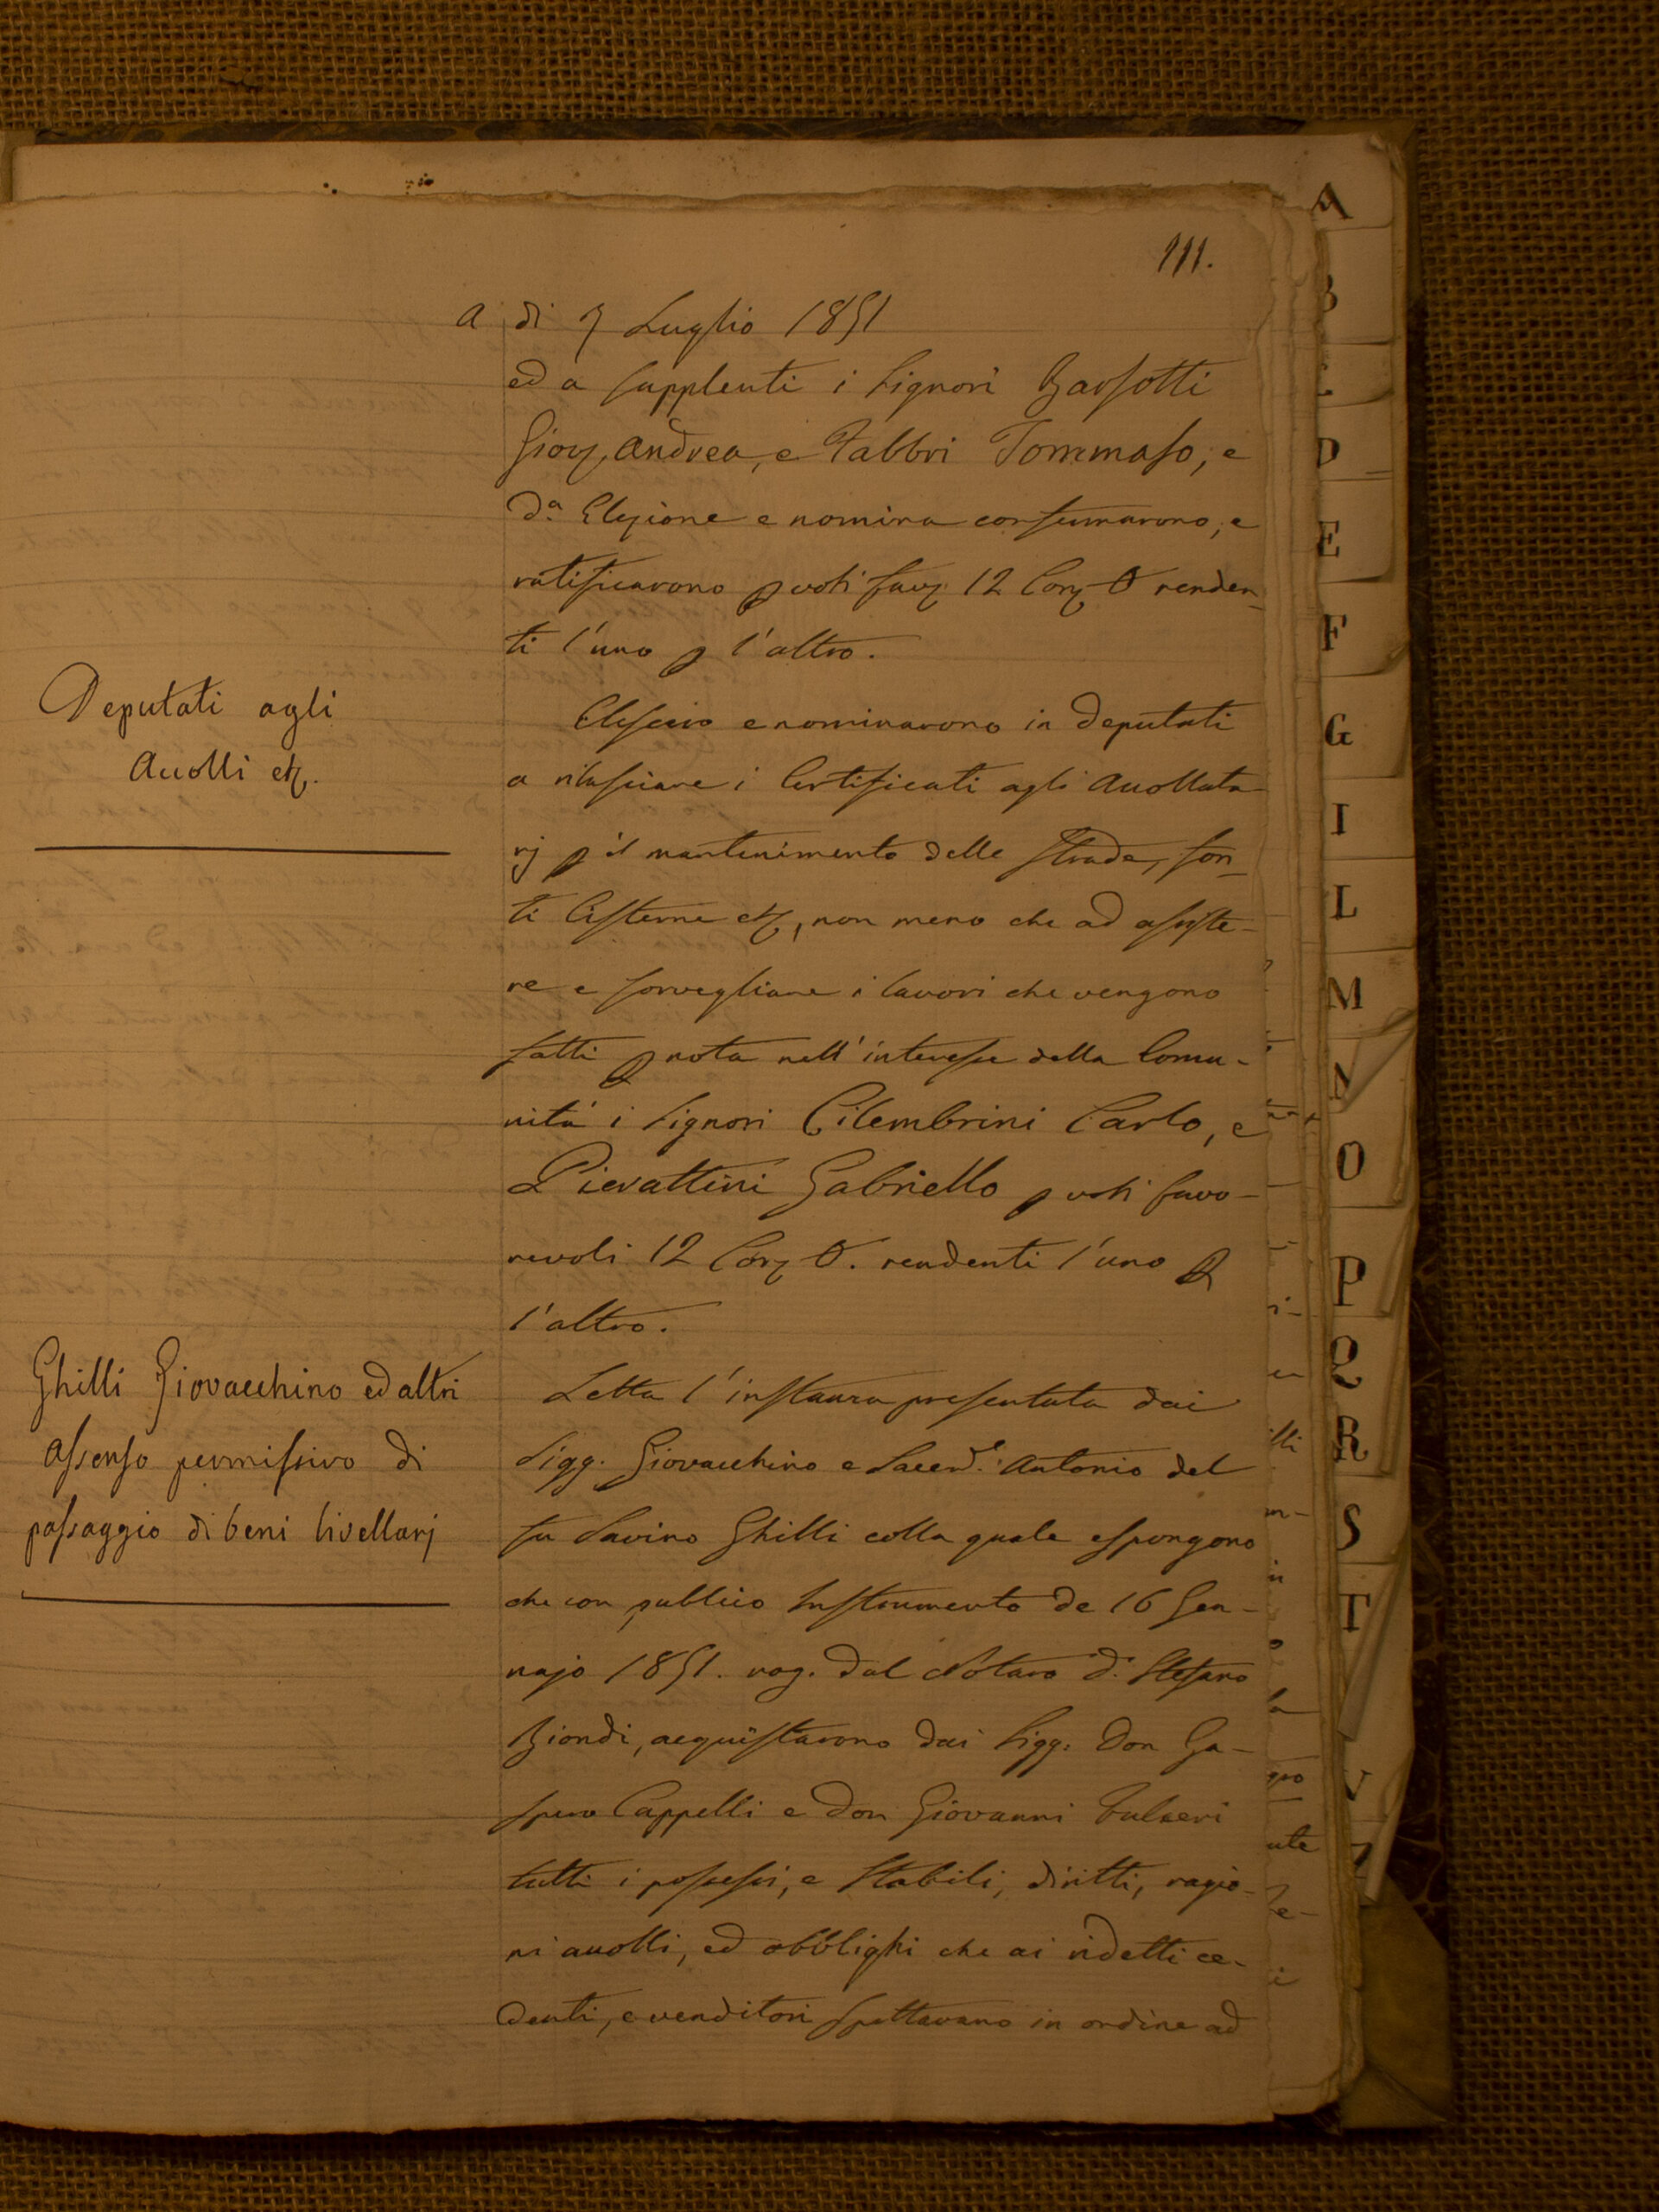 111.
a di 7 Luglio 1851
ed a supplenti i Signori Barsotti
Giov. Andrea, e Fabbri Tommaso, e
d.a Elezione e nomina confermarono, e
ratificarono p voti fav. 12 Con. O renden_
ti l'uno p l'altro.
Deputati agli
Accolli etc.
Elessero e nominarono in Deputati
a rilasciare i Certificati agli Accollata-
rj p il mantenimento delle Strade, fon_
ti Cisterne etc, non meno che ad assiste-
re e sorvegliare i lavori che vengono
fatti p nota nell'interesse della Comu-
nità i Signori Cilembrini Carlo, e
Pierattini Gabriello p voti favo-
revoli 12 Con. O. rendenti l'uno p
l'altro.
Ghilli Giovacchino ed altri
assenso permissivo di
passaggio di beni livellarj
Letta l'instanza presentata dai
Sigg. Giovacchino e Sacerd.e Antonio del
fu Savino Ghilli colla quale espongono
che con publico Instrumento de 16 Gen-
najo 1851. rog. dal Notaro d. Stefano
Biondi, acquistarono dai Sigg. Don Ga-
spero Cappelli e Don Giovanni
tutti i possessi, e Stabili, diritti, ragio-
ni accolli, ed obblighi che ai ridetti ce-
denti, e venditori spettavano in ordine ad
A
B
C
D
E
F
G
I
L
M
N
O
P
Q
R
S
T
V
Z